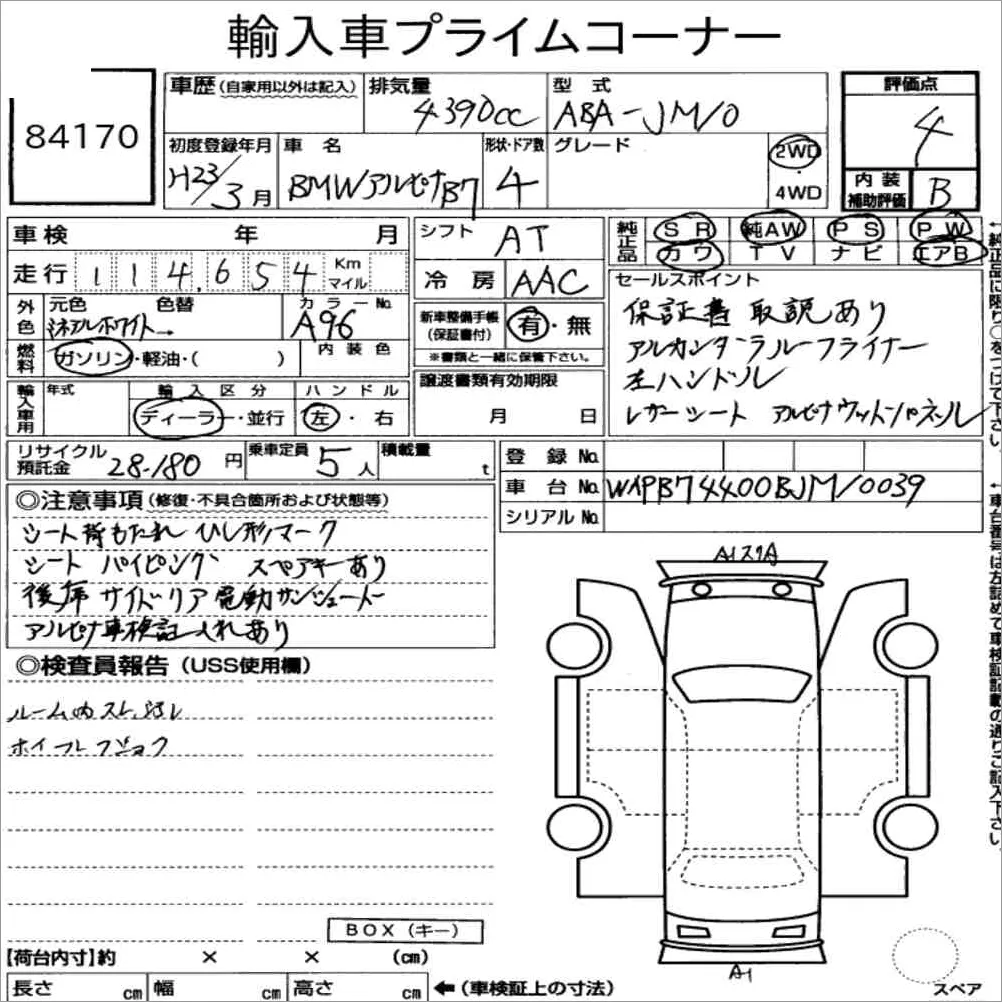 輸入車プライムコーナー
84170
車歴(自家用以外は記入)
排気量
4390cc
型 式
ABA-JM10
評価点
4
初度登録年月
H23/3月
車 名
BMWアルピナB7
形状・ドア数
4
グレード
2WD
・
4WD
内 装
補助評価
B
車 検 年 月
シフト
AT
純正品
SR 純AW PS PW
カワ TV ナビ エアB
走 行 114,654 Km マイル
冷 房 AAC
セールスポイント
保証書 取説あり
アルカンタラルーフライナー
左ハンドル
レザーシート アルピナウットパネル
外色
元色 色替
ミネラルホワイト→
カラーNo.
A96
新車整備手帳
(保証書付)
有・無
※書類と一緒に保管下さい。
燃料
ガソリン・軽油・( )
内 装 色
輸入車用
年式
輸 入 区 分
ディーラー・並行
ハ ン ド ル
左・右
譲渡書類有効期限
月 日
リサイクル
預託金
28-180円
乗車定員
5人
積載量
t
登 録 No.
車 台 No. WAPB74400BJM10039
シリアル No.
◎注意事項(修復・不具合箇所および状態等)
シート背もたれ ひし形マーク
シート パイピング スペアキーあり
後席 サイドリア電動サンシェード
アルピナ車検証入れあり
◎検査員報告(USS使用欄)
ルーム内スレ、汚レ
A1スリA
A1
BOX(キー)
【荷台内寸】約 × × (cm)
長さ cm 幅 cm 高さ cm
←(車検証上の寸法)
スペア
←純正品に限り○をつけて下さい。
←車台番号は左詰めで車検証記載の通りご記入下さい。